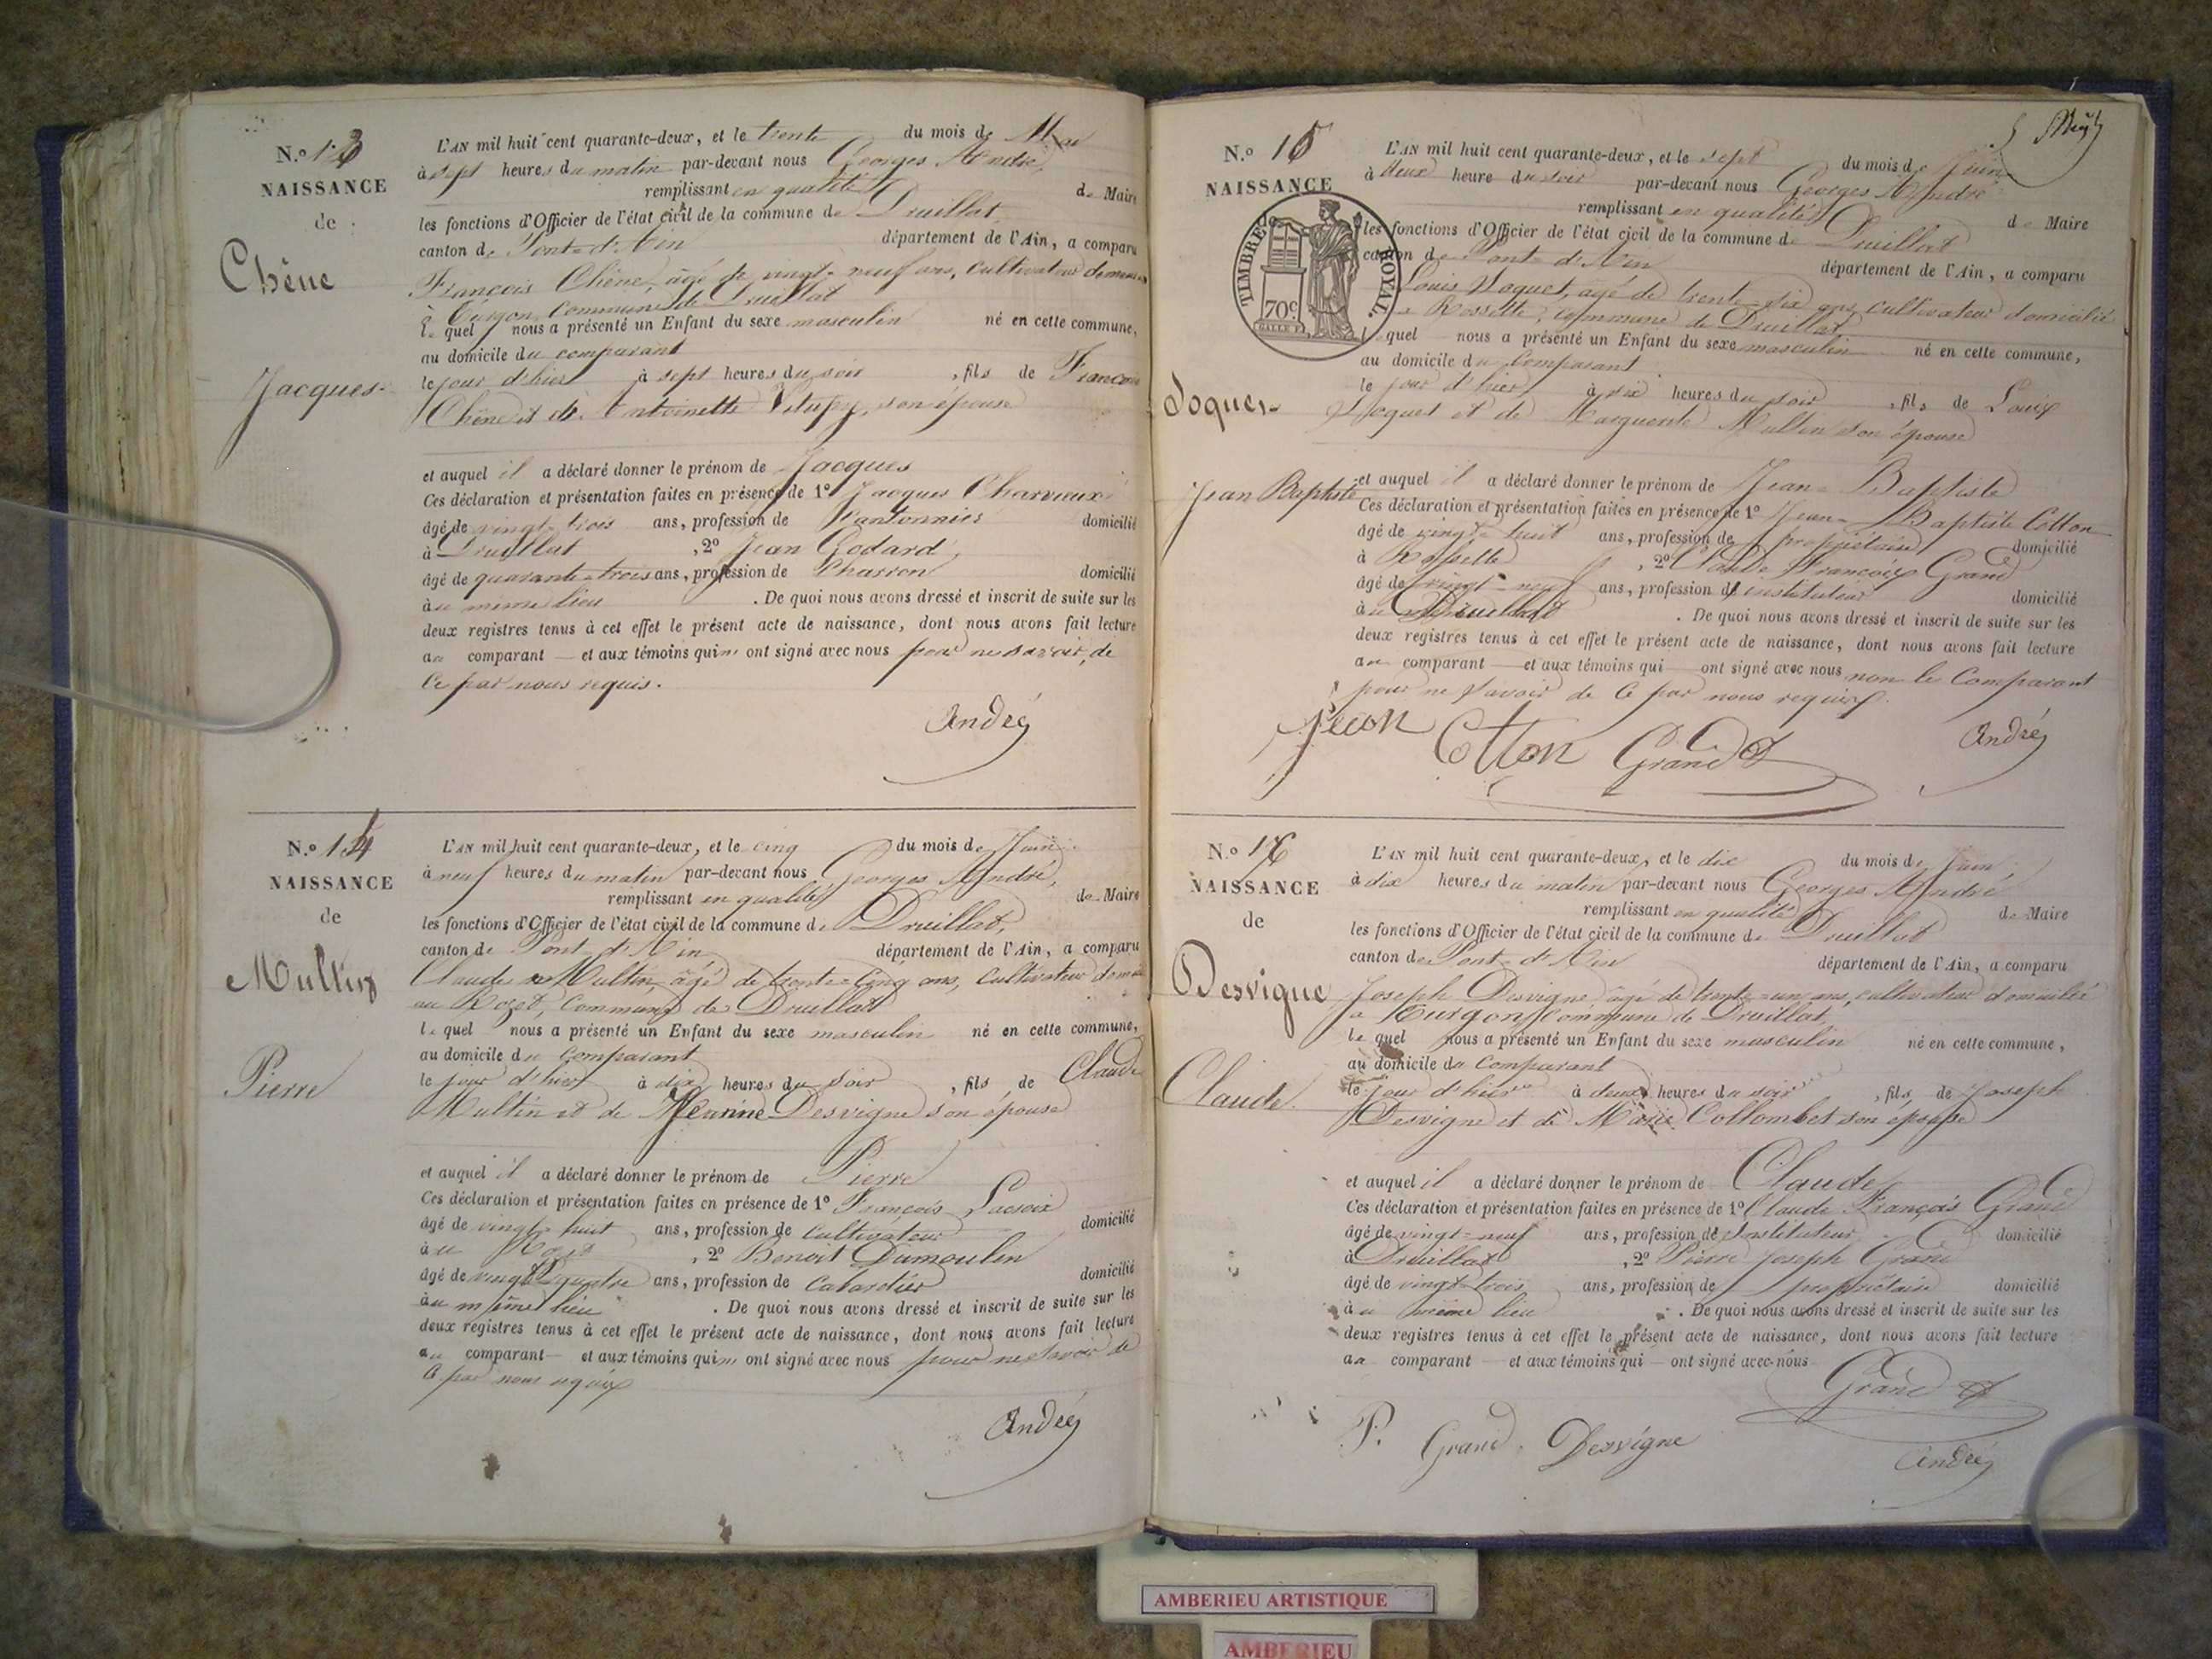 N.o 13
NAISSANCE
de
Chêne
Jacques
L'AN mil huit cent quarante-deux, et le trente du mois de Mai
à sept heures du matin par-devant nous Georges André,
remplissant en qualité de Maire
les fonctions d'Officier de l'état civil de la commune de Druillat,
canton de Pont-d'Ain département de l'Ain, a comparu
François Chêne, âgé de vingt-neuf ans, cultivateur
à Turgon, commune de Druillat
le quel nous a présenté un Enfant du sexe masculin né en cette commune,
au domicile du comparant
le jour d'hier à sept heures du soir, fils de François
Chêne et de Antoinette son épouse
et auquel il a déclaré donner le prénom de Jacques
Ces déclaration et présentation faites en présence de 1o Jacques Charvieux
âgé de vingt-trois ans, profession de Cantonnier domicilié
à Druillat, 2o Jean Godard,
âgé de quarante-trois ans, profession de Charron domicilié
au même lieu. De quoi nous avons dressé et inscrit de suite sur les
deux registres tenus à cet effet le présent acte de naissance, dont nous avons fait lecture
au comparant — et aux témoins qui n'ont signé avec nous pour ne savoir, de
ce par nous requis.
André
N.o 14
NAISSANCE
de
Multin
Pierre
L'AN mil huit cent quarante-deux, et le cinq du mois de Juin
à neuf heures du matin par-devant nous Georges André,
remplissant en qualité de Maire
les fonctions d'Officier de l'état civil de la commune de Druillat,
canton de Pont-d'Ain département de l'Ain, a comparu
Claude Multin âgé de trente-cinq ans, cultivateur
au Rozet, commune de Druillat
le quel nous a présenté un Enfant du sexe masculin né en cette commune,
au domicile du comparant
le jour d'hier à dix heures du soir, fils de Claude
Multin et de Jeannine Desvigne son épouse
et auquel il a déclaré donner le prénom de Pierre
Ces déclaration et présentation faites en présence de 1o François Lacroix
âgé de vingt-huit ans, profession de cultivateur domicilié
au Rozet, 2o Benoit Dumoulin
âgé de vingt-quatre ans, profession de Cabartier domicilié
au même lieu. De quoi nous avons dressé et inscrit de suite sur les
deux registres tenus à cet effet le présent acte de naissance, dont nous avons fait lecture
au comparant — et aux témoins qui n'ont signé avec nous pour ne savoir de
ce par nous requis
André
N.o 15
NAISSANCE
de
TIMBRE ROYAL.
70c
Joquet
Jean Baptiste
L'AN mil huit cent quarante-deux, et le sept du mois de Juin
à deux heure du soir par-devant nous Georges André
remplissant en qualité de Maire
les fonctions d'Officier de l'état civil de la commune de Druillat
canton de Pont-d'Ain département de l'Ain, a comparu
Louis Joquet, âgé de trente-six ans, cultivateur domicilié
à Rossette, commune de Druillat
le quel nous a présenté un Enfant du sexe masculin né en cette commune,
au domicile du comparant
le jour d'hier à dix heures du soir, fils de Louis
Joquet et de Marguerite Multin son épouse
et auquel il a déclaré donner le prénom de Jean-Baptiste
Ces déclaration et présentation faites en présence de 1o Jean-Baptiste Cotton
âgé de vingt-huit ans, profession de propriétaire domicilié
à Rossette, 2o Claude François Grand
âgé de vingt-neuf ans, profession d'instituteur domicilié
à Druillat. De quoi nous avons dressé et inscrit de suite sur les
deux registres tenus à cet effet le présent acte de naissance, dont nous avons fait lecture
au comparant — et aux témoins qui — ont signé avec nous non le comparant
pour ne savoir de ce par nous requis.
Jean Cotton Grand André
N.o 16
NAISSANCE
de
Desvigne
Claude
L'AN mil huit cent quarante-deux, et le dix du mois de Juin
à dix heures du matin par-devant nous Georges André
remplissant en qualité de Maire
les fonctions d'Officier de l'état civil de la commune de Druillat
canton de Pont-d'Ain département de l'Ain, a comparu
Joseph Desvigne âgé de trente-un ans, cultivateur domicilié
à Turgon, commune de Druillat,
le quel nous a présenté un Enfant du sexe masculin né en cette commune,
au domicile du comparant
le jour d'hier à deux heures du soir, fils de Joseph
Desvigne et de Marie Collombet son épouse
et auquel il a déclaré donner le prénom de Claude
Ces déclaration et présentation faites en présence de 1o Claude François Grand
âgé de vingt-neuf ans, profession de Instituteur domicilié
à Druillat, 2o Pierre Joseph Grand
âgé de vingt-trois ans, profession de propriétaire domicilié
au même lieu. De quoi nous avons dressé et inscrit de suite sur les
deux registres tenus à cet effet le présent acte de naissance, dont nous avons fait lecture
au comparant — et aux témoins qui — ont signé avec nous
Grand
P. Grand. Desvigne
André
AMBERIEU ARTISTIQUE
AMBERIEU